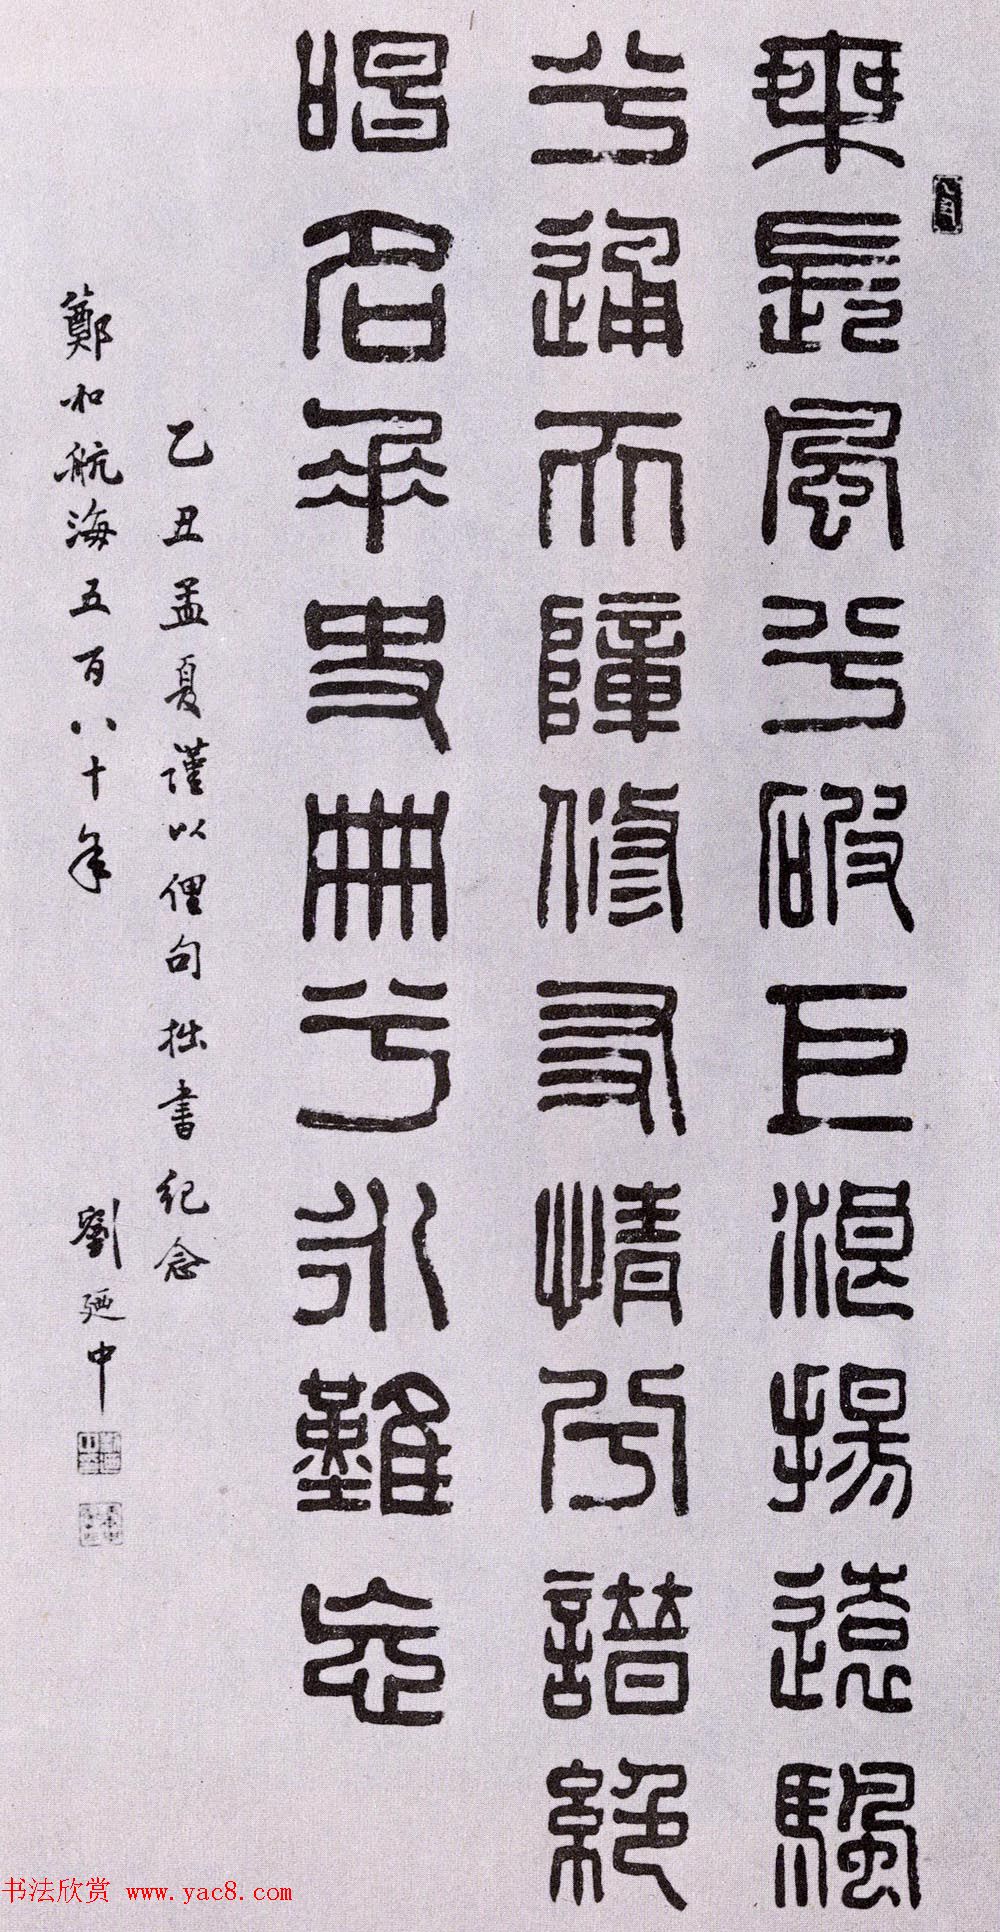 乘長風兮破巨浪揚遠颿
兮通天障修友情兮譜絕
唱名垂史冊兮永難忘
乙丑孟夏謹以俚句拙書紀念
鄭和航海五百八十年 劉廼中
书法欣赏 www.yac8.com